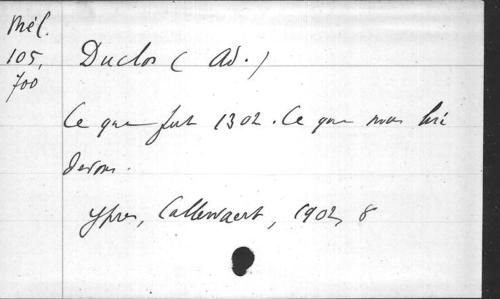 Mél.
105,
700
Duclos (Ad.)
Ce que fut 1302. Ce que nous lui
devons.
Ypres, Callewaert, 1902, 8